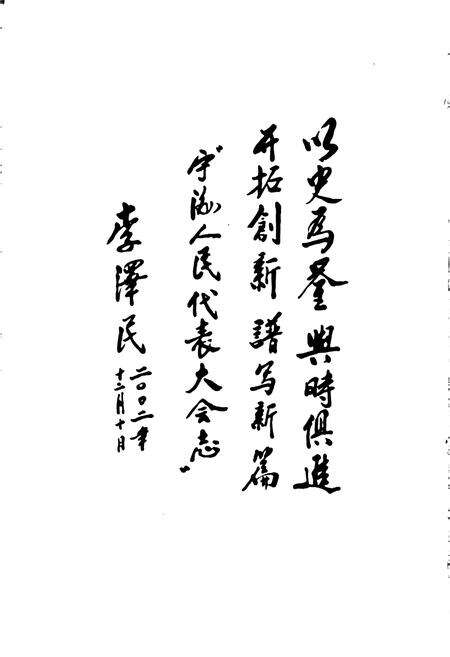 以史為鉴與時俱進
开拓創新譜写新篇
“宁海人民代表大会志”
李澤民
二〇〇二年
十二月十日